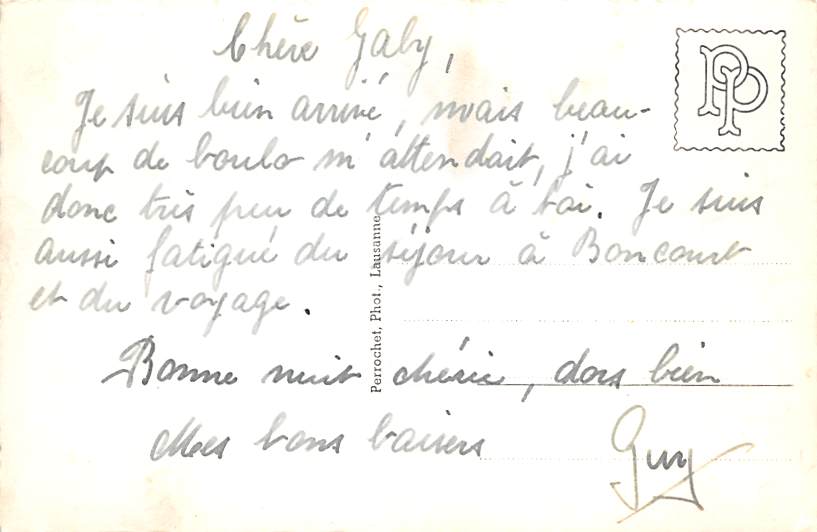 Chère Gaby,
Je suis bien arrivé, mais beau-
coup de boulo m'attendait, j'ai
donc très peu de temps à toi. Je suis
aussi fatigué du séjour à Boncourt
et du voyage.
Bonne nuit chérie, dors bien
Mes bons baisers
Guy
Perrochet, Phot., Lausanne
PP